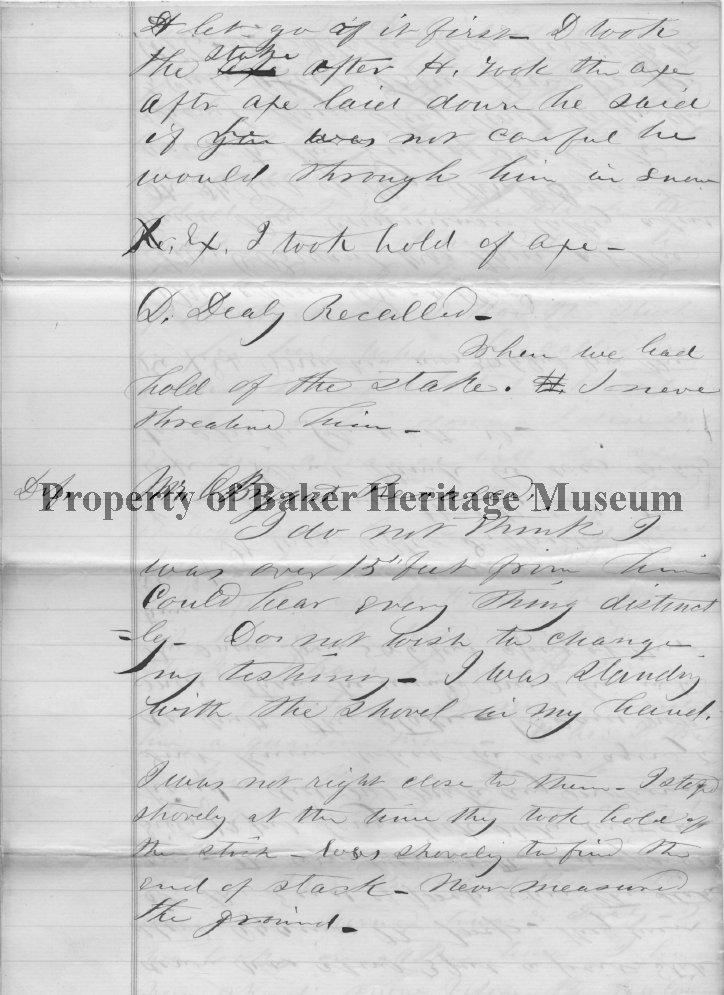 let go of it first – D took
the stake after H. took the axe
Aftr axe laid down he said
if he was not careful he
would through him in snow
Ex. I took hold of axe –
D. Dealy Recalled –
When we had
hold of the stake. H. I never
threatend him –
Df. Mr. C. Bryant Recalled.
Property of Baker Heritage Museum
I do not think I
was over 15 feet from him
Could hear every thing distinct
=ly – Doe not wish to change
my testimony – I was standing
with the shovel in my hand.
I was not right close to them – I stopd
shovely at the time they took hold of
the stick – was shovelig to find the
end of stask – Never measured
the ground –